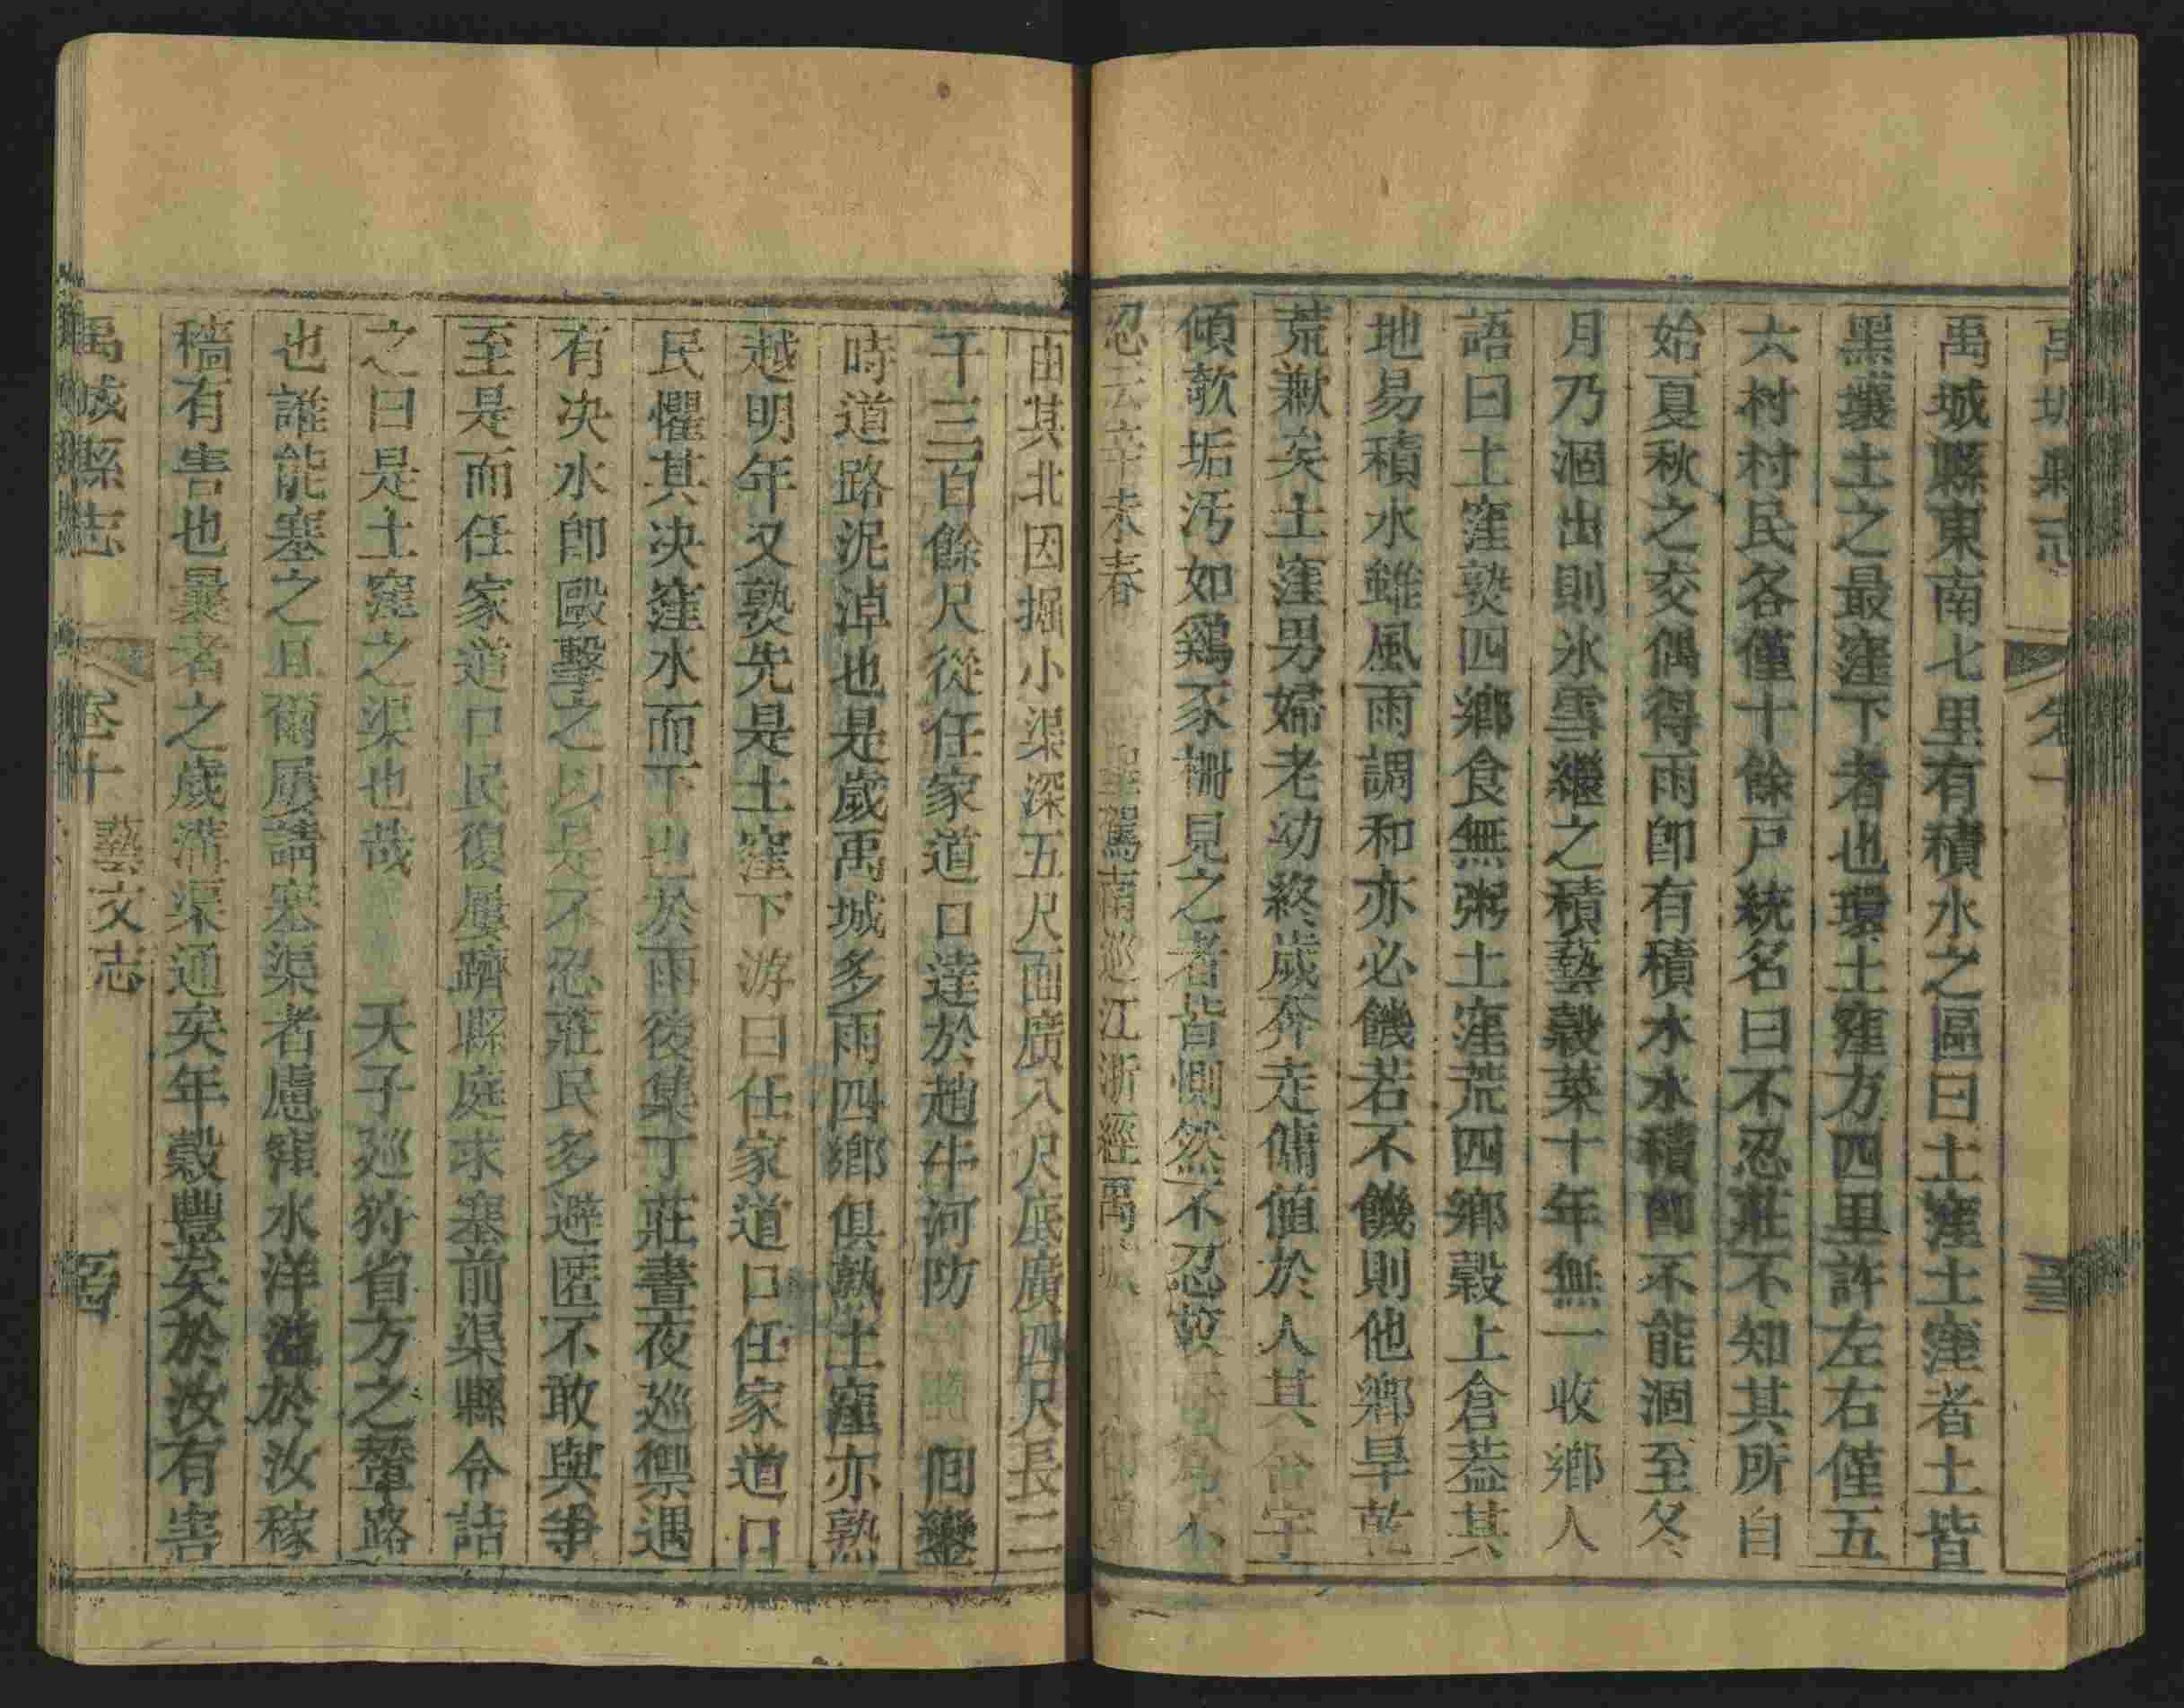 禹城縣志
卷十
禹城縣東南七里有積水之區曰土窪土窪者土皆
黑壤土之最窪下者也環土窪方四里許左右僅五
六村村民各僅十餘戸統名曰不忍莊不知其所自
始夏秋之交偶得雨即有積水水積即不能涸至冬
月乃涸出則氷雪繼之積藝穀菜十年無一收鄉人
語曰土窪熟四鄉食無粥土窪荒四鄉穀上倉蓋其
地易積水雖風雨調和亦必饑若不饑則他鄉旱乾
荒歉矣土窪男婦老幼終歲奔走傭値於人其舍宇
傾欹垢汚如鷄豕柵見之者皆惻然不忍故 不
忍云辛未春 聖駕南巡江浙經禹
由其北因掘小渠深五尺面廣八尺底廣四尺長二
千三百餘尺從任家道口達於趙牛河防 囘鑾
時道路泥淖也是歲禹城多雨四鄉俱熟土窪亦熟
越明年又熟先是土窪下游曰任家道口任家道口
民懼其决窪水而下也於雨後集丁莊晝夜巡禦遇
有决水即毆擊之以是不忍莊民多避匿不敢與爭
至是而任家道口民復屢躋縣庭求塞前渠縣令詰
之曰是土窪之渠也哉 天子廵狩省方之輦路
也誰能塞之且爾屢請塞渠者慮窪水洋溢於汝稼
穡有害也曩者之歲溝渠通矣年穀豐矣於汝有害
禹城縣志 卷十 藝文志